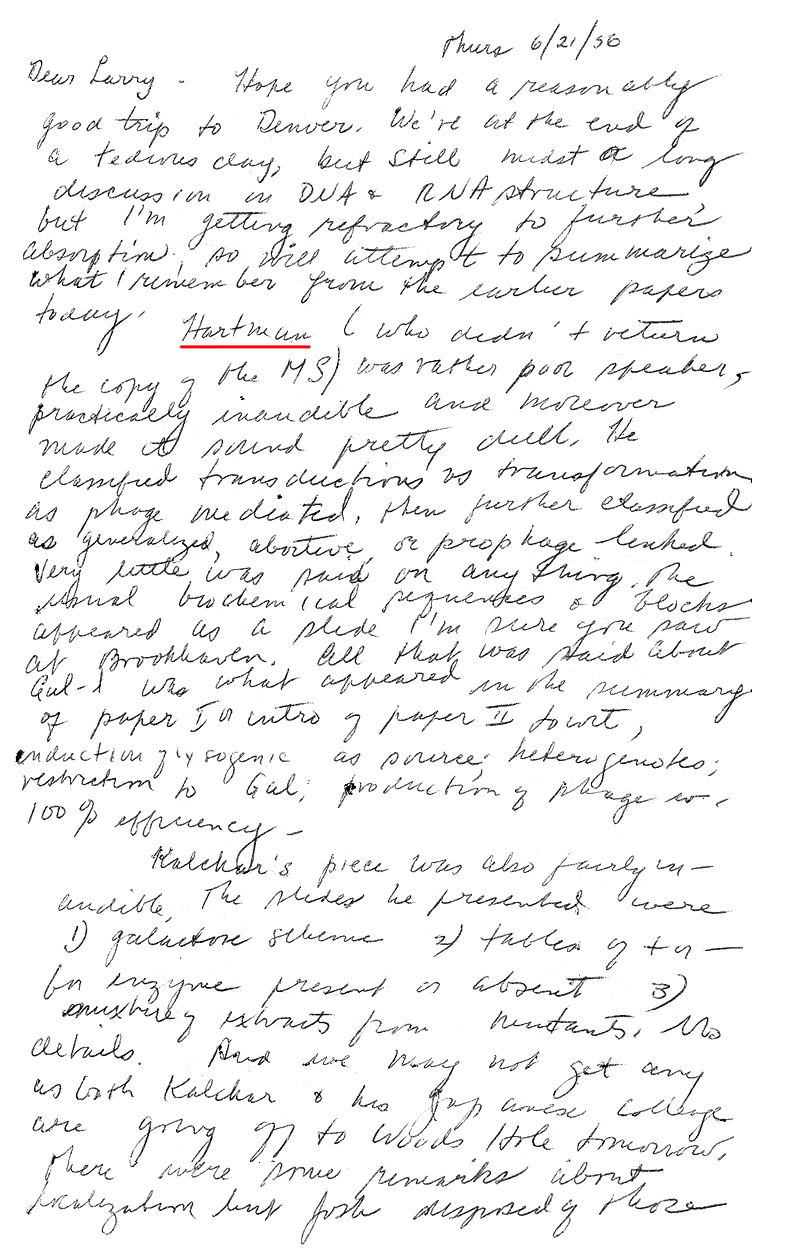 Thurs 6/21/56
Dear Larry - Hope you had a reasonably
good trip to Denver. We're at the end of
a tedious day, but still midst a long
discussion on DNA & RNA structure,
but I'm getting refractory to further
absorption, so will attempt to summarize
what I remember from the earlier papers
today.
Hartman (who didn't return
the copy of the MS) was rather poor speaker,
practically inaudible and moreover
made it sound pretty dull. He
classified transductions vs transformation
as phage mediated, then further classified
as generalized, abortive, or prophage linked.
Very little was said on anything. The
usual biochemical sequences & blocks
appeared as a slide I'm sure you saw
at Brookhaven. All that was said about
Gal-1 was what appeared in the summary
of paper I, or intro of paper II to wit,
induction of lysogenic as source; heterogenotes;
restriction to Gal; production of phage w.
100% efficiency -
Kalckar's piece was also fairly in-
audible. The slides he presented were
1) galactose scheme 2) tables of + or -
for enzyme present or absent 3)
mixture of extracts from mutants. No
details. And we may not get any
as both Kalckar & his Japanese colleague
are going off to Woods Hole tomorrow.
There were some remarks about
localization but Josh disposed of those